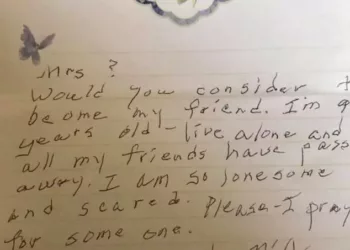 Mrs ?
Would you consider
become my friend. I'm
years old - live alone and
all my friends have pass
away. I am so lonesome
and scared. Please - I pray
for some one.